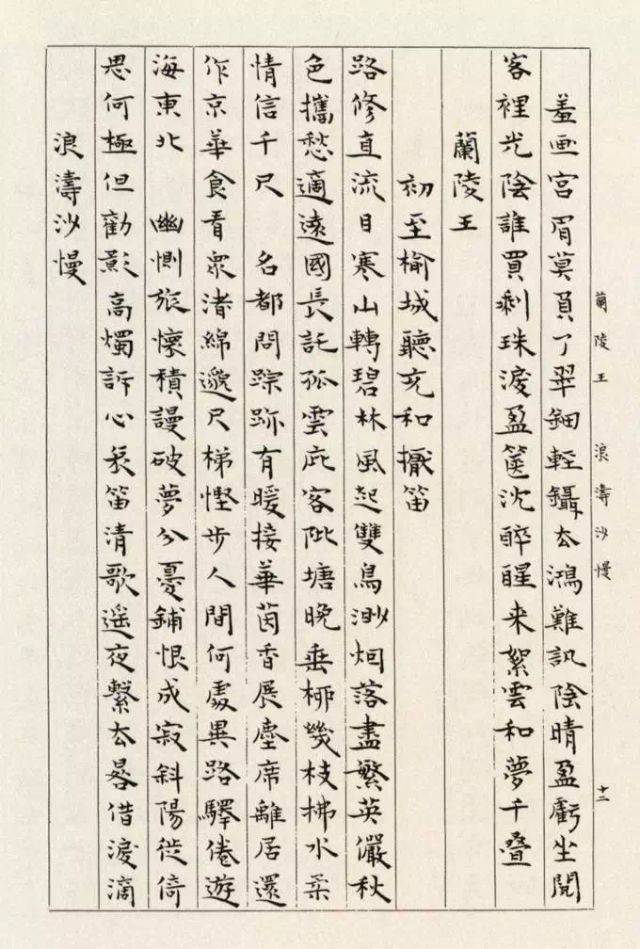 蘭陵王　浪濤沙慢　十二
羞画宮眉莫負了翠鈿輕鑷去鴻難訊陰晴盈虧坐閲
客裡光陰誰買剩珠淚盈篋沈醉醒来絮雲和夢千疊
蘭陵王
初至榆城聽充和擫笛
路修直流目寒山轉碧林風起雙鳥渺烟落盡繁英儼秋
色攜愁適遠國長託孤雲庇客阰塘晚垂柳幾枝拂水柔
情信千尺　名都問踪跡有暖接華茵香展塵席離居還
作京華食看衆渚綿邈尺梯慳步人間何處異路驛倦遊
海東北　幽惻旅懷積謾破夢分憂鋪恨成寂斜陽徙倚
思何極但勸影高燭訴心哀笛清歌遥夜繫去晷借淚滴
浪濤沙慢